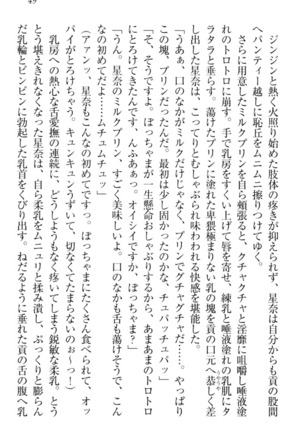 49
ジンジンと熱く火照り始めた肢体の疼きが抑えられず、星奈は自分からも貢の股間
へパンティー越しに恥丘をムニムニ擦りつけてゆく。
さらに用意したミルクプリンを自ら頬張ると、クチャクチャと淫靡に咀嚼し唾液塗
れのトロトロに崩す。手で乳房をすくい上げて唇を寄せ、練乳と唾液塗れの乳肌にタ
ラタラと垂らす。蕩けたプリンに塗れた卑猥極まりない乳の塊を貢の口元へ恭しく差
しだし、星奈は、こってりともしゃぶられ味わわれる快感を堪能した。
「うあぁ、口のなかがミルクだけじゃなく、プリンでクチャクチャだ……。やっぱり
この塊、プリンだったんだ。最初は少し固かったのかな、チュパチュッパ」
「そ、そうですよ。ぼっちゃまが一生懸命おしゃぶりするから、あまあまのトロトロ
に蕩けてしまったんです、んふあぁっ。オイシイですか、ぼっちゃま？」
「うん。星奈のミルクプリン、すごく美味しいよ。口のなかも舌も蕩けそうで、こん
なの初めてだよ……ムチュムチュッ」
（アァンッ、星奈もこんなの初めてですっ。ぼっちゃまにたくさん食べられて、オッ
パイがとろけちゃう。キュンキュンうずいて、切なくてたまらないのぉーっ！）
乳房への熱心な舌愛撫の連続に、どうしようもなく疼いてしまう鋭敏な柔乳。とう
とう堪えきれなくなった星奈は、自ら柔乳をムニュリと揉み潰し、ぷっくりと膨らん
だ乳輪とビンビンに勃起した乳首をくびり出す。ねだるように垂れた貢の舌の腹へ乳